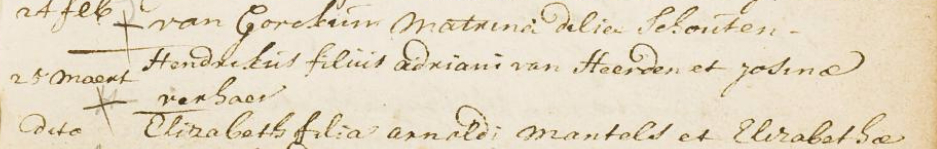 24 feb van Gorckum Matrina dilia Schouten -
Hendrikus filius adriani van Heerden et Josinæ
25 Maert
verhaer
dito Elizabeth filia arnoldi Mantels et Elizabethæ